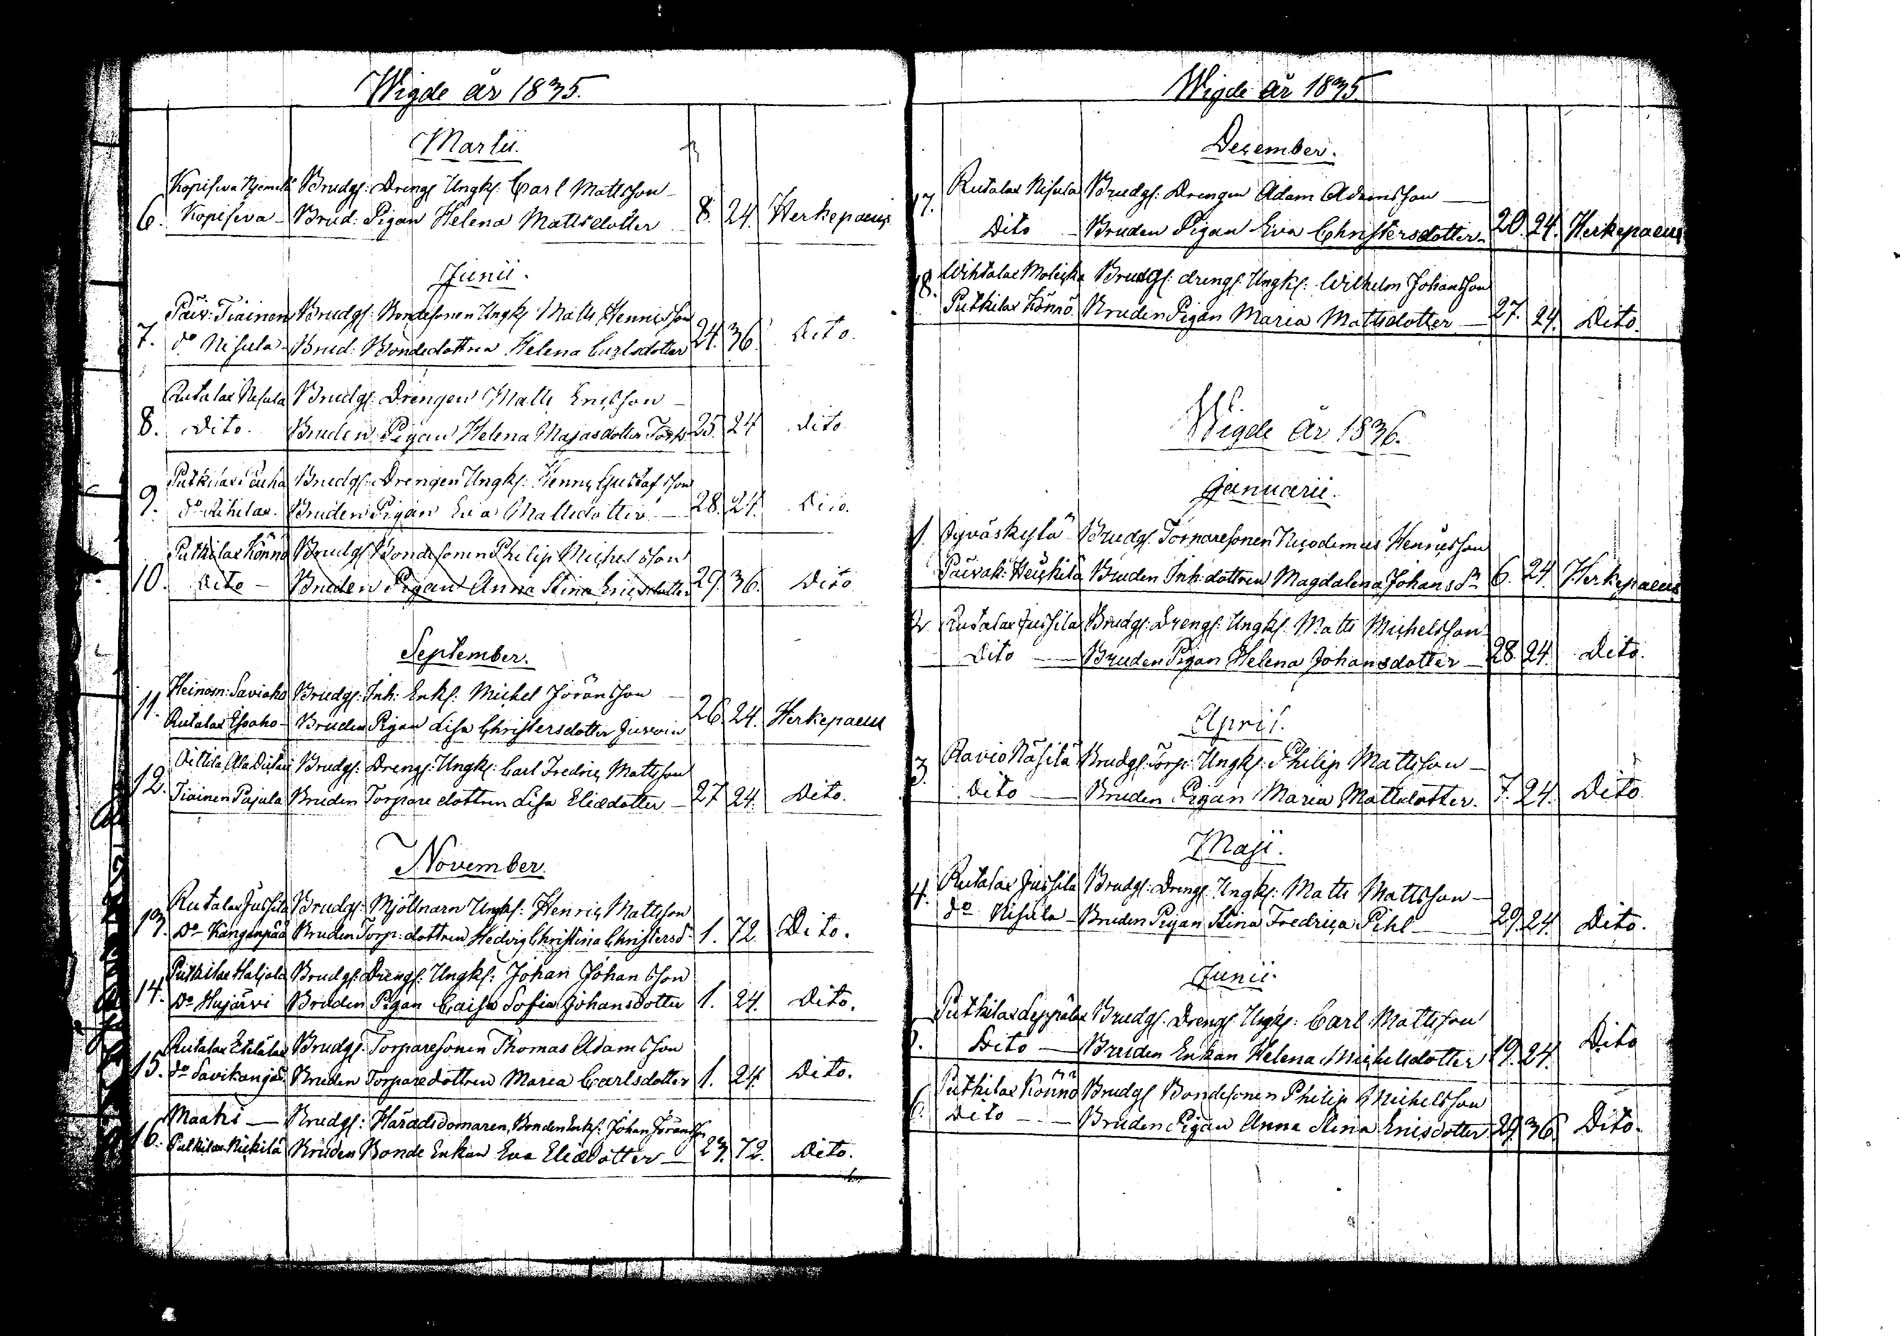 Wigde år 1835.
Martii.
Kopisiwa Niemelä Brudg: Dreng Ungk: Carl Mattsson
6. Kopisiwa Brud: Pigan Helena Mattsdotter 8. 24. Herkepaeus
Junii.
Päiv: Tiainen Brudg: Bondesonen Ungk: Matts Henricsson
7. do Nisula Brud: Bondedottren Helena Carlsdotter 24. 36. Dito.
Rutalax Nisula Brudg: Drengen Matts Ericsson
8. Dito. Bruden Pigan Helena Majasdotter 25. 24 Dito
Putkilax Brudg: Drengen Ungk: Henric Gustafsson
9. do Rihilax. Bruden Pigan Eva Mattsdotter 28. 24. Dito.
Putkilax Könnö Brudg: Bondesonen Philip Michelsson
10. Dito Bruden Pigan Anna Stina Ericsdotter 29. 36. Dito
September.
Heinosn: Saviaho Brudg: Inh: Enkl: Michel Jöransson
11. Rutalax Bruden Pigan Lisa Christersdotter 26. 24. Herkepaeus
Brudg: Dreng: Ungk: Carl Fredric Mattsson
12. Tiainen Pajula Bruden Torparedottren Lisa Eliædotter 27 24. Dito.
November.
Rutalax Jussila Brudg: Mjöllnarn Ungk: Henric Mattsson
13. Do Kanganpää Bruden Torp: dottren Hedvig Christina Christersdr 1. 72. Dito.
Putkilax Haljala Brudg: Dreng: Ungk: Johan Johansson
14. Do Hujärvi Bruden Pigan Caisa Sofia Johansdotter 1. 24. Dito.
Rutalax Etelälax Brudg: Torparesonen Thomas Adamsson
15. do Savikangas Bruden Torparedottren Maria Carlsdotter 1. 24. Dito.
Maahi Brudg: Häradsdomaren, Bonden Enkl: Johan Jöransson
16. Putkilax Nickilä Bruden Bonde Enkan Eva Eliædotter 23. 72. Dito.
Wigde År 1835.
December.
Rutalax Nisula Brudg: Drengen Adam Adamsson
17. Dito Bruden Pigan Eva Christersdotter 20. 24. Herkepaeus
Wihtalax Brudg: dreng: Ungk: Wilhelm Johansson
18. Putkilax Könnö Bruden Pigan Maria Mattsdotter 27. 24. Dito.
Wigde År 1836.
Januarii.
1. Jyväskylä Brudg: Torparesonen Nicodemus Henricsson
Päivak: Heickilä Bruden Inh: dottren Magdalena Johansdr 6. 24. Herkepaeus
2 Rutalax Jussila Brudg: Dreng: Ungk: Matts Michelsson
Dito Bruden Pigan Helena Johansdotter 28. 24. Dito.
April.
3. Ravio Näsilä Brudg: Torp: Ungk: Philip Mattsson
Dito Bruden Pigan Maria Mattsdotter. 7. 24. Dito
Maji.
4. Rutalax Jussila Brudg: Dreng: Ungk: Matts Mattsson
do Nisula Bruden Pigan Stina Fredrica Pihl 29. 24. Dito.
Junii.
Putkilax Seppälax Brudg: Dreng Ungk: Carl Mattsson
5. Dito Bruden Enkan Helena Michelsdotter 19. 24. Dito
Putkilax Könnö Brudg: Bondesonen Philip Michelsson
6. Dito Bruden Pigan Anna Stina Ericsdotter 29. 36. Dito.